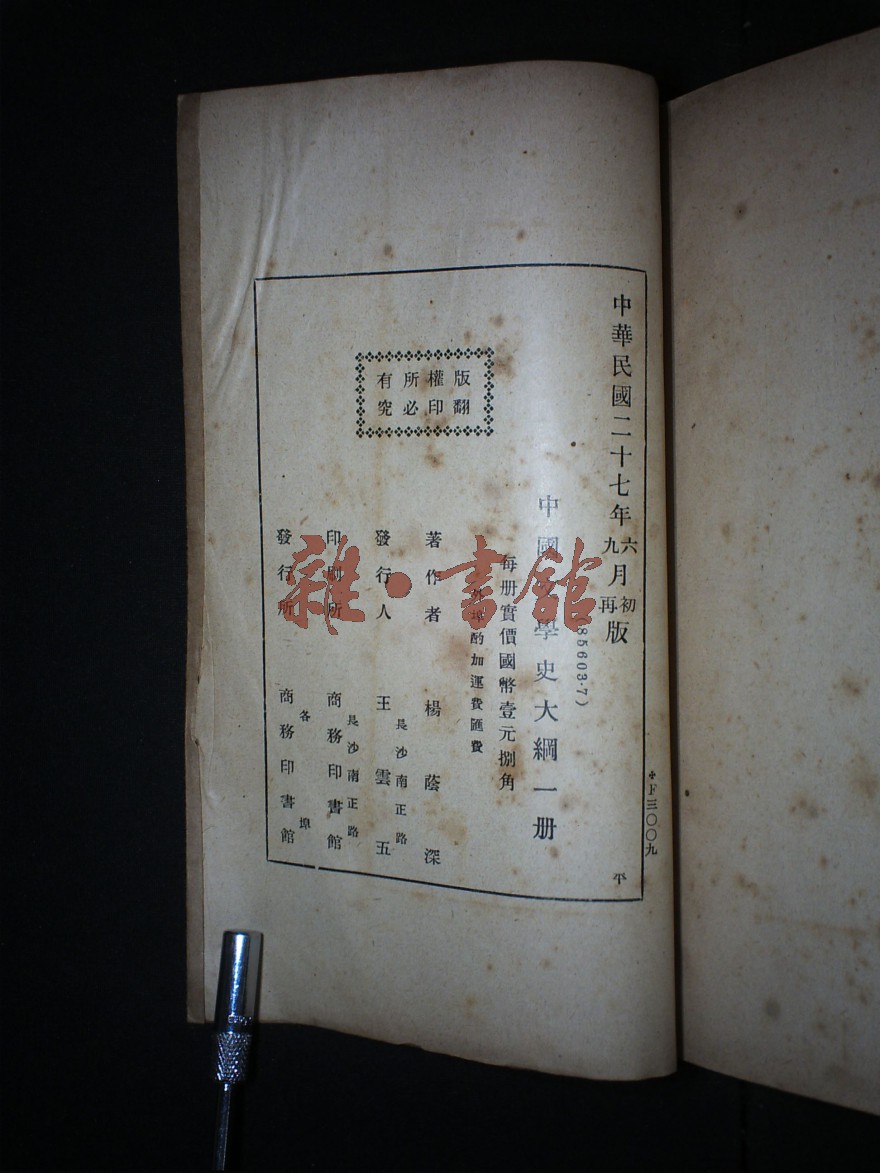 中華民國二十七年六月初版
九再
(85603·7)
中國學史大綱一册
每册實價國幣壹元捌角
埠酌加運費匯費
版權所有
翻印必究
著作者 楊蔭深
發行人 王雲五
長沙南正路
印刷所 商務印書館
長沙南正路
發行所 商務印書館
各埠
＊F三〇〇九
平
雜·書館